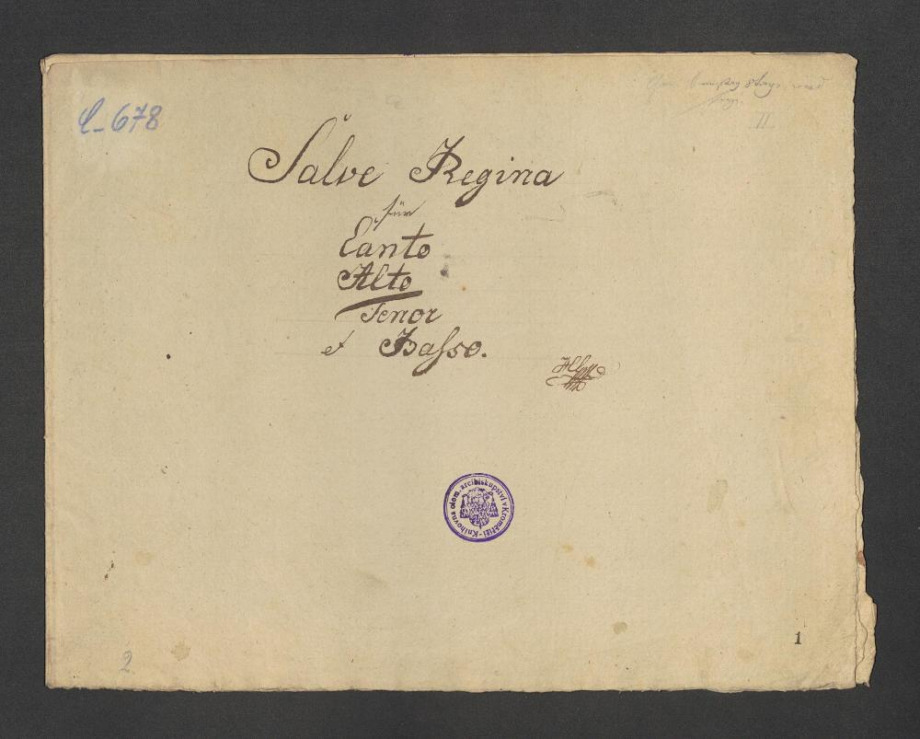 C-678
II
Salve Regina
für
Canto
Alto
Tenor
et Basso.
Knihovna olom. arcibiskupství v Kroměříži
1
2